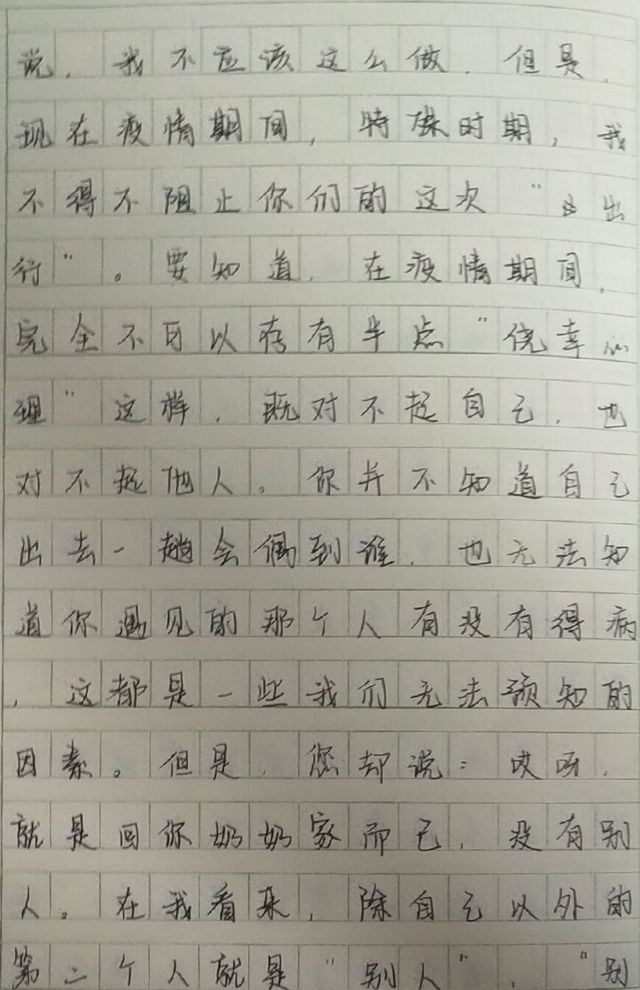 说，我不应该这么做，但是，
现在疫情期间，特殊时期，我
不得不阻止你们的这次“出
行”。要知道，在疫情期间，
完全不可以存有半点“侥幸心
理”这样，既对不起自己，也
对不起他人。你并不知道自己
出去一趟会偶到谁，也无法知
道你遇见的那个人有没有得病
，这都是一些我们无法预知的
因素。但是，您却说：哎呀，
就是回你奶奶家而已，没有别
人。在我看来，除自己以外的
第二个人就是“别人”，“别